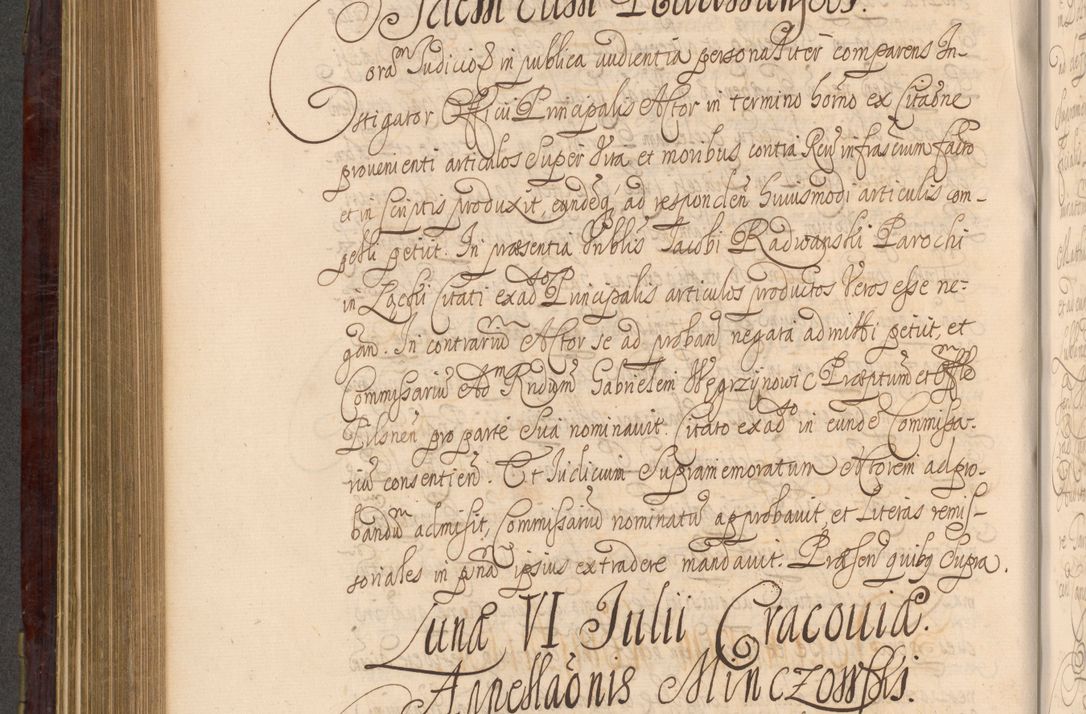 Idem cum Radwanskis.
Coram Judicio et in publica audientia personaliter comparens In-
stigator Officii Principalis Actor in termino horno ex Citaõne
provenienti articulos super vita et moribus contra Reũ infrascriũm facto
et in scriptis produxit, eundẽq, ad respondeñ huiusmodi articulis com-
pelli petiit. In præsentia Inblis Jacobi Radwanski Parochi
in Lącki Citati ex adõ Principalis articulos productos veros esse ne-
gan. In contrariũ Actor se ad proband negata admitti petiit, et
Commissariũ Ad Rndum Gabrielem Węgrzynowic Præptum et Offlẽ
Pilsneñ pro parte sua nominavit. Citato ex adõ in eunde Commissa-
riũ consentieñ. Et Judicium supramemoratum Actorem ad pro-
bandũ admisit, Commissariũ nominatũ approbavit, et Literas remis-
soriales in pñã ipsius extradere mandavit. Præsen quibq supra.
Luna VI Julii Cracoviæ.
Appellaõnis Minczowski.